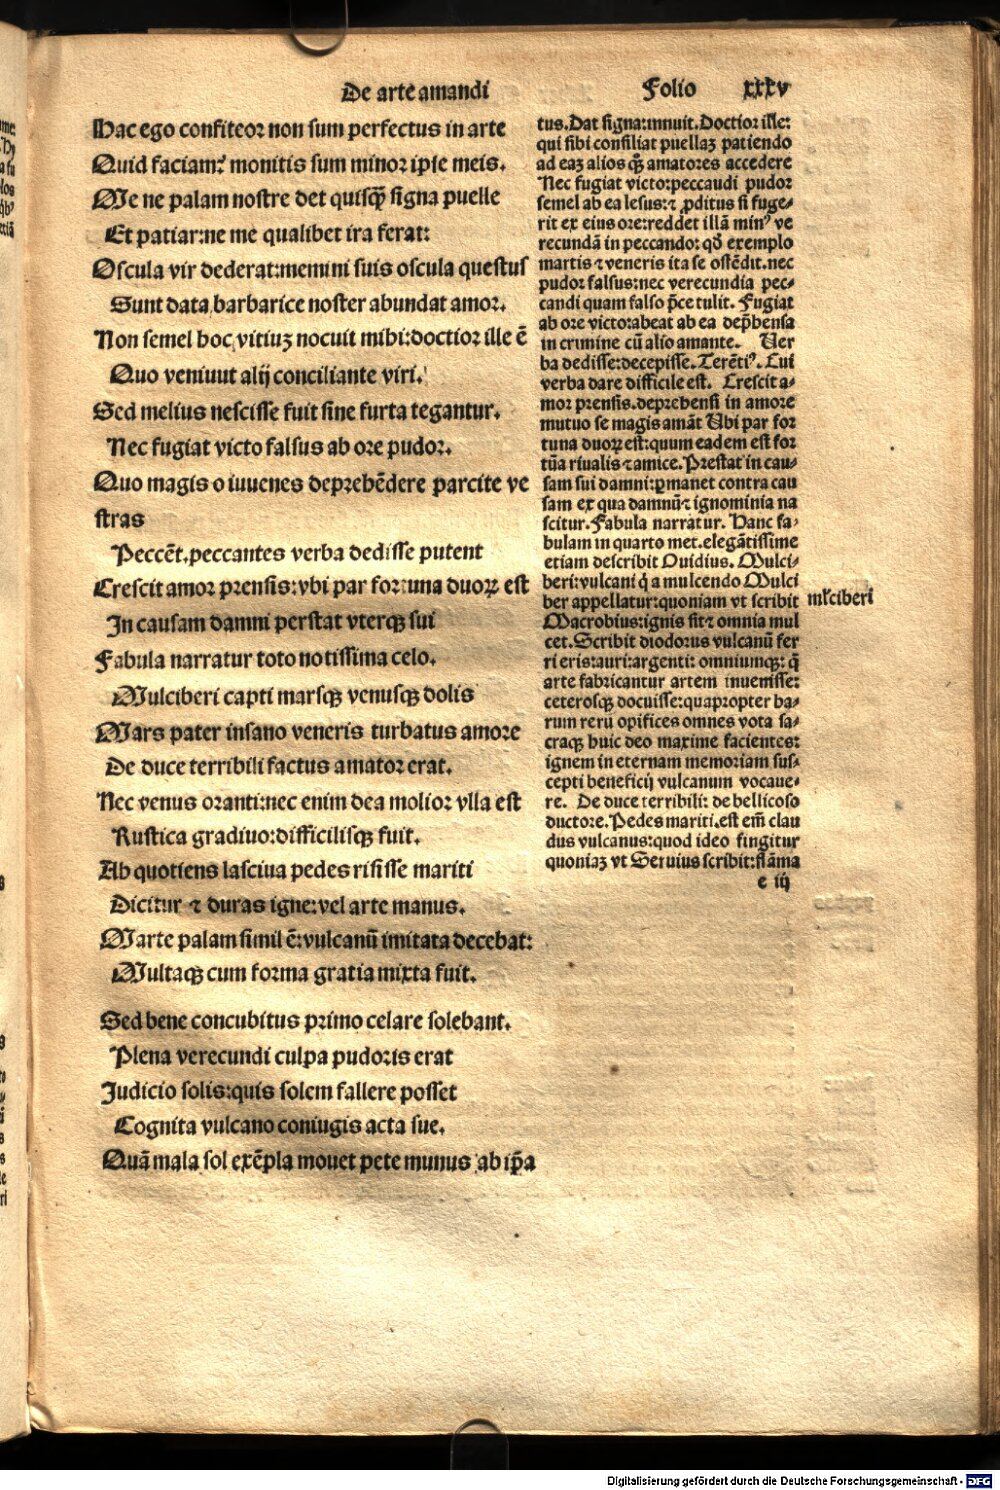 De arte amandi Folio xxxv
Hac ego confiteor non sum perfectus in arte
Quid faciam? monitis sum minor ipse meis.
Me ne palam nostre det quisqꝫ signa puelle
Et patiar:ne me qualibet ira ferat:
Oscula vir dederat:memini suis oscula questus
Sunt data barbarice noster abundat amor.
Non semel hoc vitiuꝫ nocuit mihi:doctior ille ē
Quo veniuut alij conciliante viri.
Sed melius nescisse fuit sine furta tegantur.
Nec fugiat victo falsus ab ore pudor.
Quo magis o iuuenes deprehēdere parcite ve
stras
Peccēt.peccantes verba dedisse putent
Crescit amor prensis:vbi par fortuna duoꝝ est
In causam damni perstat vterqꝫ sui
Fabula narratur toto notissima celo.
Mulciberi capti marsqꝫ venusqꝫ dolis
Mars pater insano veneris turbatus amore
De duce terribili factus amator erat.
Nec venus oranti:nec enim dea molior vlla est
Rustica gradiuo:difficilisqꝫ fuit.
Ah quotiens lasciua pedes risisse mariti
Dicitur ⁊ duras igne:vel arte manus.
Marte palam simil ē:vulcanū imitata decebat:
Multaqꝫ cum forma gratia mixta fuit.
Sed bene concubitus primo celare solebant.
Plena verecundi culpa pudoris erat
Judicio solis:quis solem fallere posset
Cognita vulcano coniugis acta sue.
Quā mala sol exēpla mouet pete munus ab ip̄a
tus.Dat signa:innuit.Doctior ille:
qui sibi consiliat puellaꝫ patiendo
ad eaꝫ alios qꝫ̄ amatores accedere
Nec fugiat victo:peccaudi pudor
semel ab ea lesus:⁊ ꝓditus si fuge-
rit ex eius ore:reddet illā minꝰ ve
recundā in peccando: qđ exemplo
martis ⁊ veneris ita se ostēdit.nec
pudor falsus:nec verecundia pec-
candi quam falso p̄ce tulit. Fugiat
ab ore victo:abeat ab ea dep̄hensa
in crimine cū alio amante. Ver
ba dedisse:decepisse.Terētiꝰ.Cui
verba dare difficile est. Crescit a-
mor prensis.deprehensi in amore
mutuo se magis amāt Ubi par for
tuna duoꝝ est:quum eadem est for
tūa riualis ⁊ amice.Prestat in cau-
sam sui damni:ꝑmanet contra cau
sam ex qua damnū⁊ ignominia na
scitur.Fabula narratur. Hanc fa-
bulam in quarto met.elegātissime
etiam describit Ouidius. Mulci-
beri:vulcani q̇ a mulcendo Mulci
ber appellatur:quoniam vt scribit
Macrobius:ignis sit⁊ omnia mul
cet.Scribit diodorus vulcanū fer
ri eris:auri:argenti: omniumqꝫ: q̄
arte fabricantur artem inuenisse:
ceterosqꝫ docuisse:quapropter ha-
rum rerū opifices omnes vota sa-
craqꝫ huic deo maxime facientes:
ignem in eternam memoriam sus-
cepti beneficij vulcanum vocaue-
re. De duce terribili: de bellicoso
ductore.Pedes mariti.est em̄ clau
dus vulcanus:quod ideo fingitur
quoniaꝫ vt Seruius scribit:flāma
e iij
mlciberi
Digitalisierung gefördert durch die Deutsche Forschungsgemeinschaft - DFG